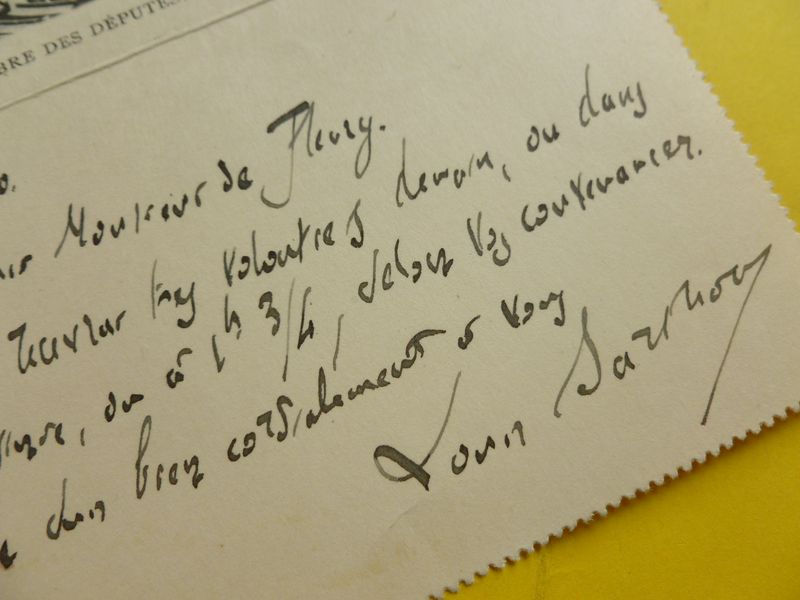 BRE DES DÉPUTÉS
Monsieur de Fleury.
recevrai très volontiers demain, ou dans
ou à 1h 3/4, selon vos convenances.
suis bien cordialement à vous
Louis Barthou